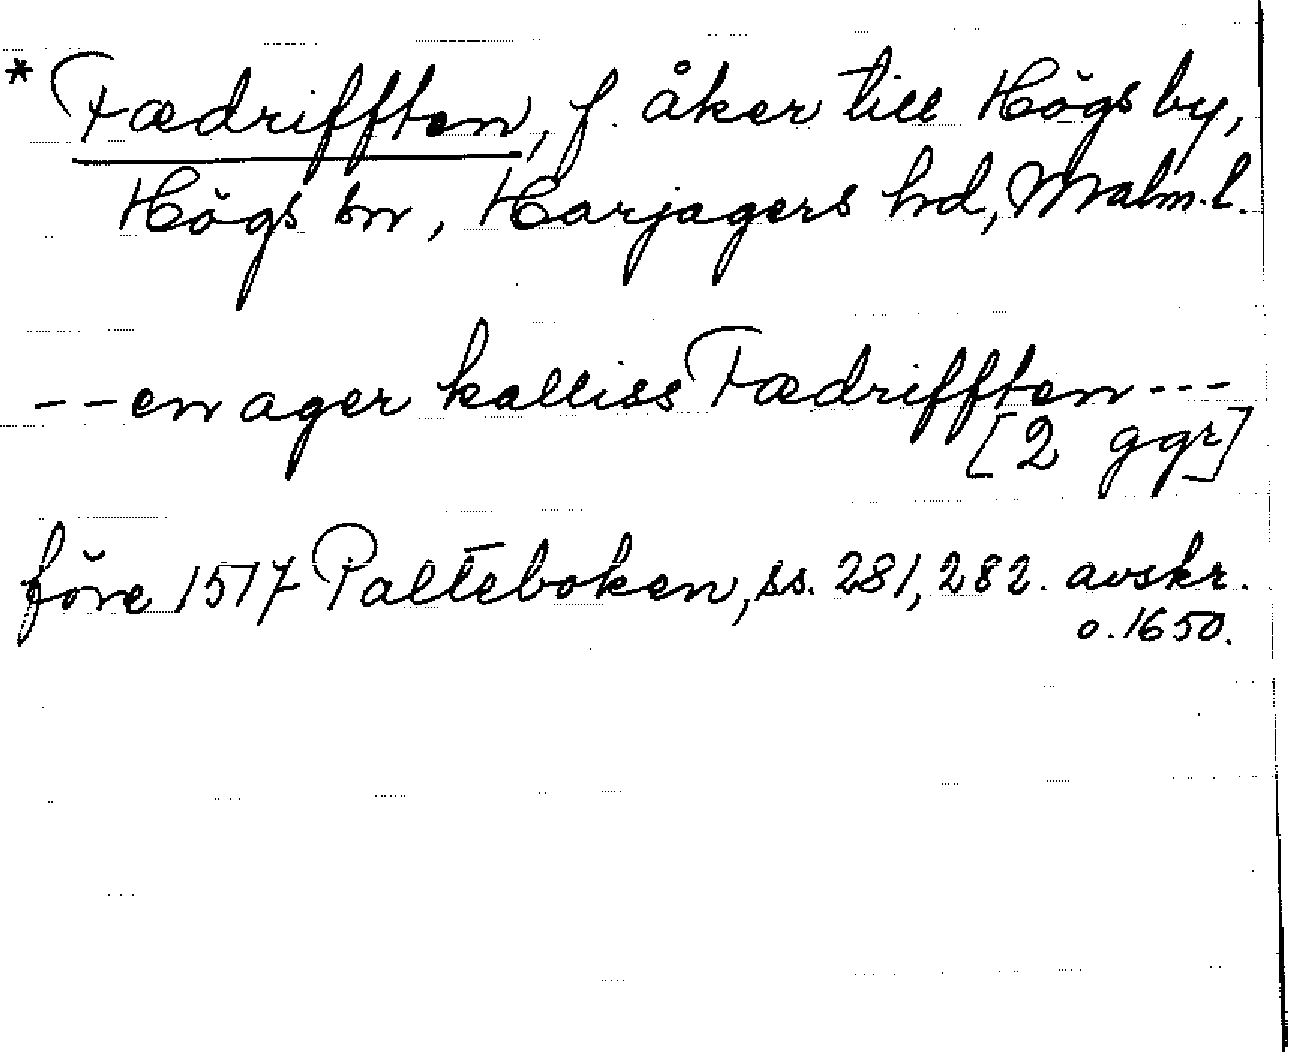 * Fædrifften, f. åker till Högs by,
Högs sn, Harjagers hd, Malm. l.
-- en ager kalliss Fædrifften ---
[2 ggr]
före 1517 Palteboken, ss. 281, 282. avskr.
o. 1650.